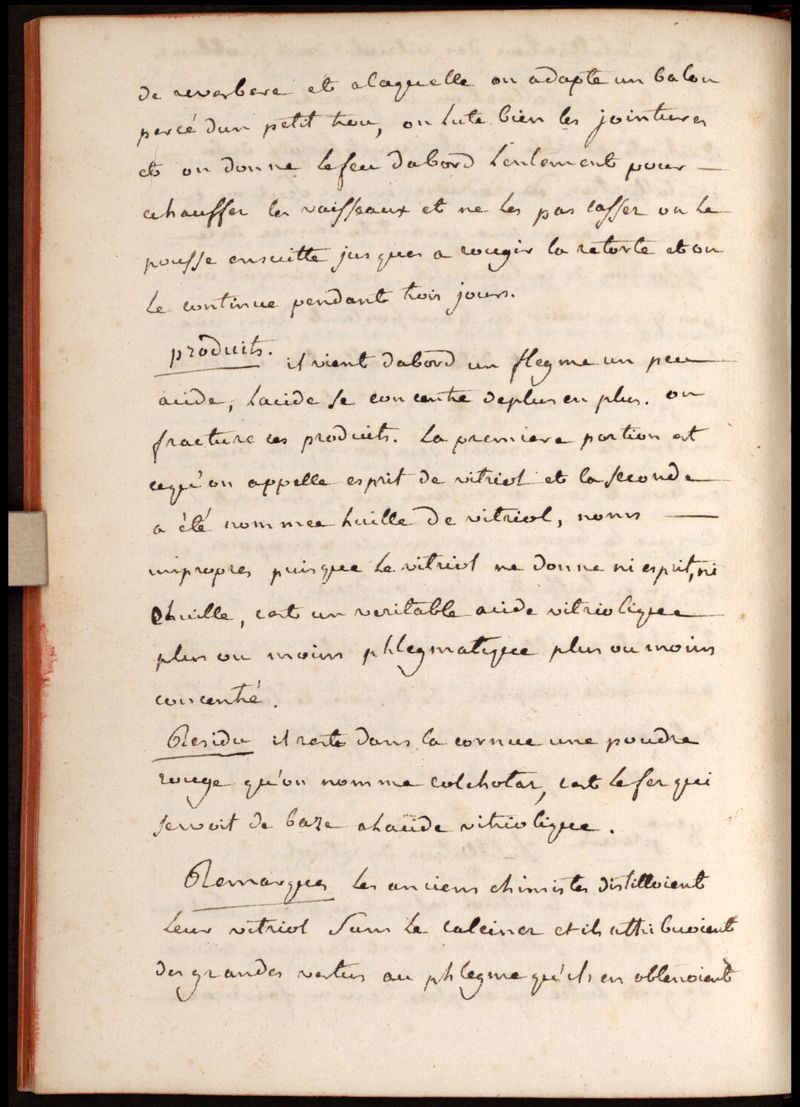 de reverbere et alaquelle on adapte un balon
percé dun petit trou, on lute bien les jointures
et on donne le feu dabord lentement pour
echauffer les vaisseaux et ne les pas casser on le
pousse ensuitte jusques a rougir la retorte et on
le continue pendant trois jours.
produits. il vient dabord un flegme un peu
acide, lacide se concentre deplus en plus. on
fracture ces produits. la premiere portion est
cequ'on appelle esprit de vitriol et la seconde
a été nommée huille de vitriol, noms
impropres puisque le vitriol ne donne ni esprit, ni
huille, cest un veritable acide vitriolique
plus ou moins phlegmatique plus ou moins
concentré.
Residu il reste dans la cornue une poudre
rouge qu'on nomme colchotar, cest le fer qui
servoit de baze a lacide vitriolique.
Remarques les anciens chimistes distilloient
leur vitriol sans le calciner et ils attribuoient
des grandes vertus au phlegme qu'ils en obtenoient